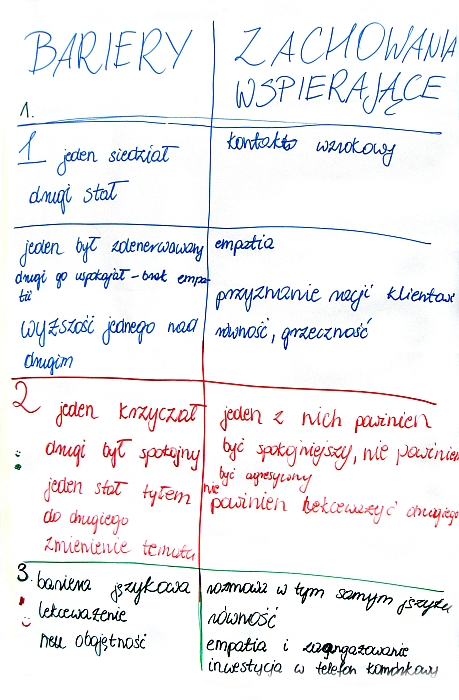 BARIERY
ZACHOWANIA
WSPIERAJĄCE
1.
1 jeden siedział
drugi stał
kontakt wzrokowy
jeden był zdenerwowany
drugi go uspokajał - brak empa-
tii
wyższość jednego nad
drugim
empatia
przyznanie racji klientowi
równość, grzeczność
2 jeden krzyczał
drugi był spokojny
jeden stał tyłem
do drugiego
zmienienie tematu
jeden z nich powinien
być spokojniejszy, nie powinien
być agresywny
nie
powinien lekceważyć drugiego
3. bariera językowa
lekceważenie
obojętność
rozmowa w tym samym języku
równość
empatia i zaangażowanie
inwestycja w telefon komórkowy